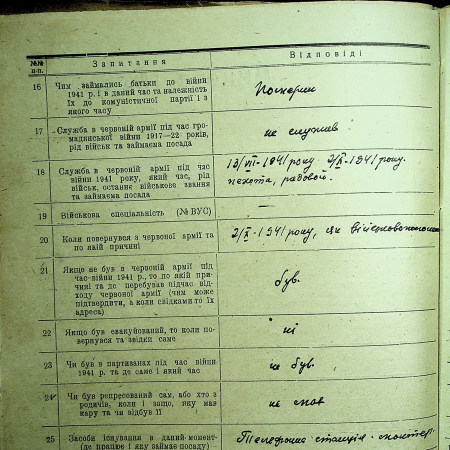 №№ п-п. Запитання Відповіді
16 Чим займались батьки до війни
1941 р. і в даний час та належність
їх до комуністичної партії і з
якого часу
17 Служба в червоній армії під час гро-
мадянської війни 1917—22 років,
рід військ та займаєма посада
не служив
18 Служба в червоній армії під час
війни 1941 року, який час, рід
військ, останнє військове звання
та займаєма посада
13/VII-1941 року 2/X-1941 року.
пехота, рядовой.
19 Військова спеціальність (№ ВУС) —
20 Коли повернувся з червоної армії та
по якій причині
2/X-1941 року, як військовополон
21 Якщо не був в червоній армії під
час війни 1941 р., то по якій при-
чині та де перебував підчас від-
ходу червоної армії (чим може
підтвердити, а коли свідками то їх
адреса)
був.
22 Якщо був евакуйований, то коли по-
вернувся та звідки саме
ні
23 Чи був в партизанах під час війни
1941 р. та де саме і який час
не був.
24 Чи був репресований сам, або хто з
родичів, коли і защо, яку мав
кару та чи відбув її
25 Засоби існування в даний момент
(де працює і яку займає посаду) —
Телефонна станція - монтер.